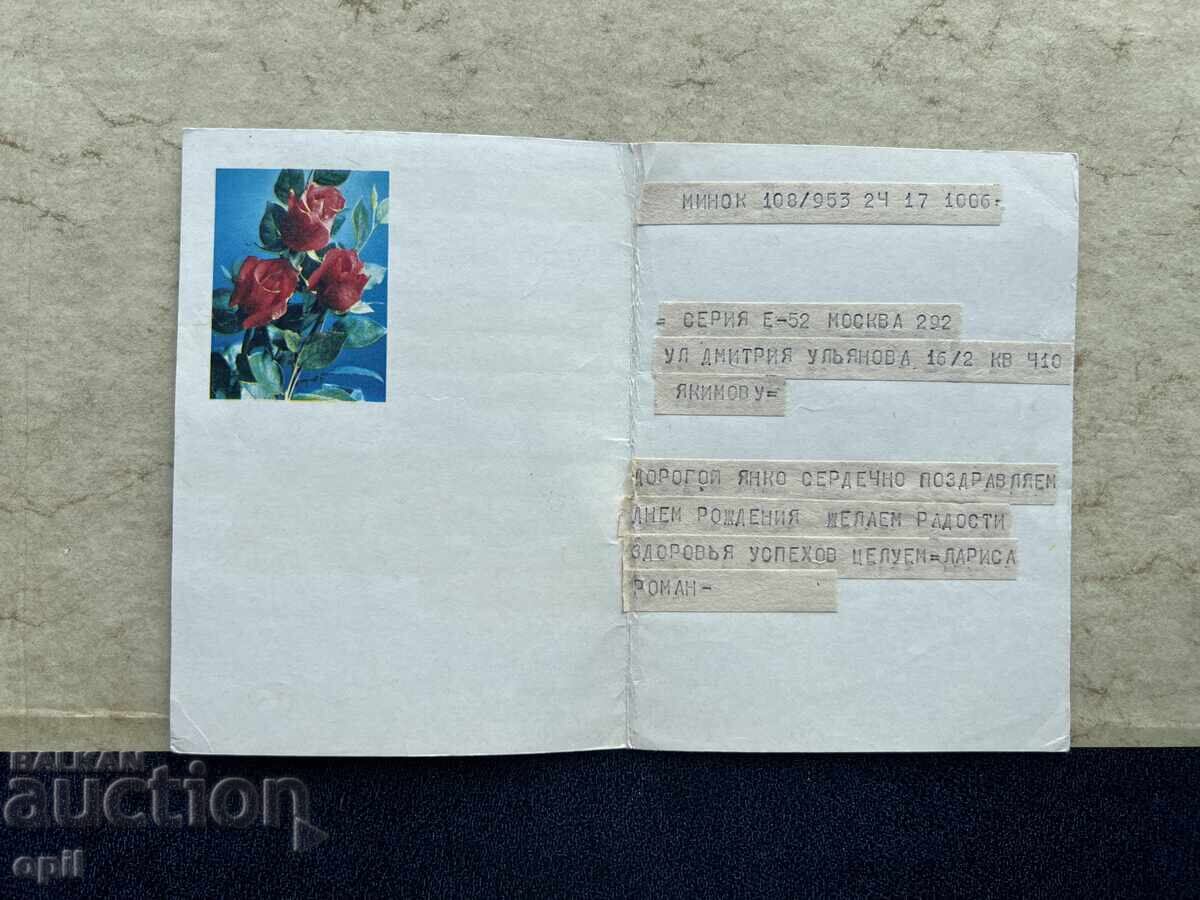 МИНОК 108/953 24 17 1006=
= СЕРИЯ Е-52 МОСКВА 292
УЛ ДМИТРИЯ УЛЬЯНОВА 16/2 КВ 410
ЯКИМОВУ=
ДОРОГОЙ ЯНКО СЕРДЕЧНО ПОЗДРАВЛЯЕМ
ДНЕМ РОЖДЕНИЯ ЖЕЛАЕМ РАДОСТИ
ЗДОРОВЬЯ УСПЕХОВ ЦЕЛУЕМ=ЛАРИСА
РОМАН-
BALKAN
auction
opil